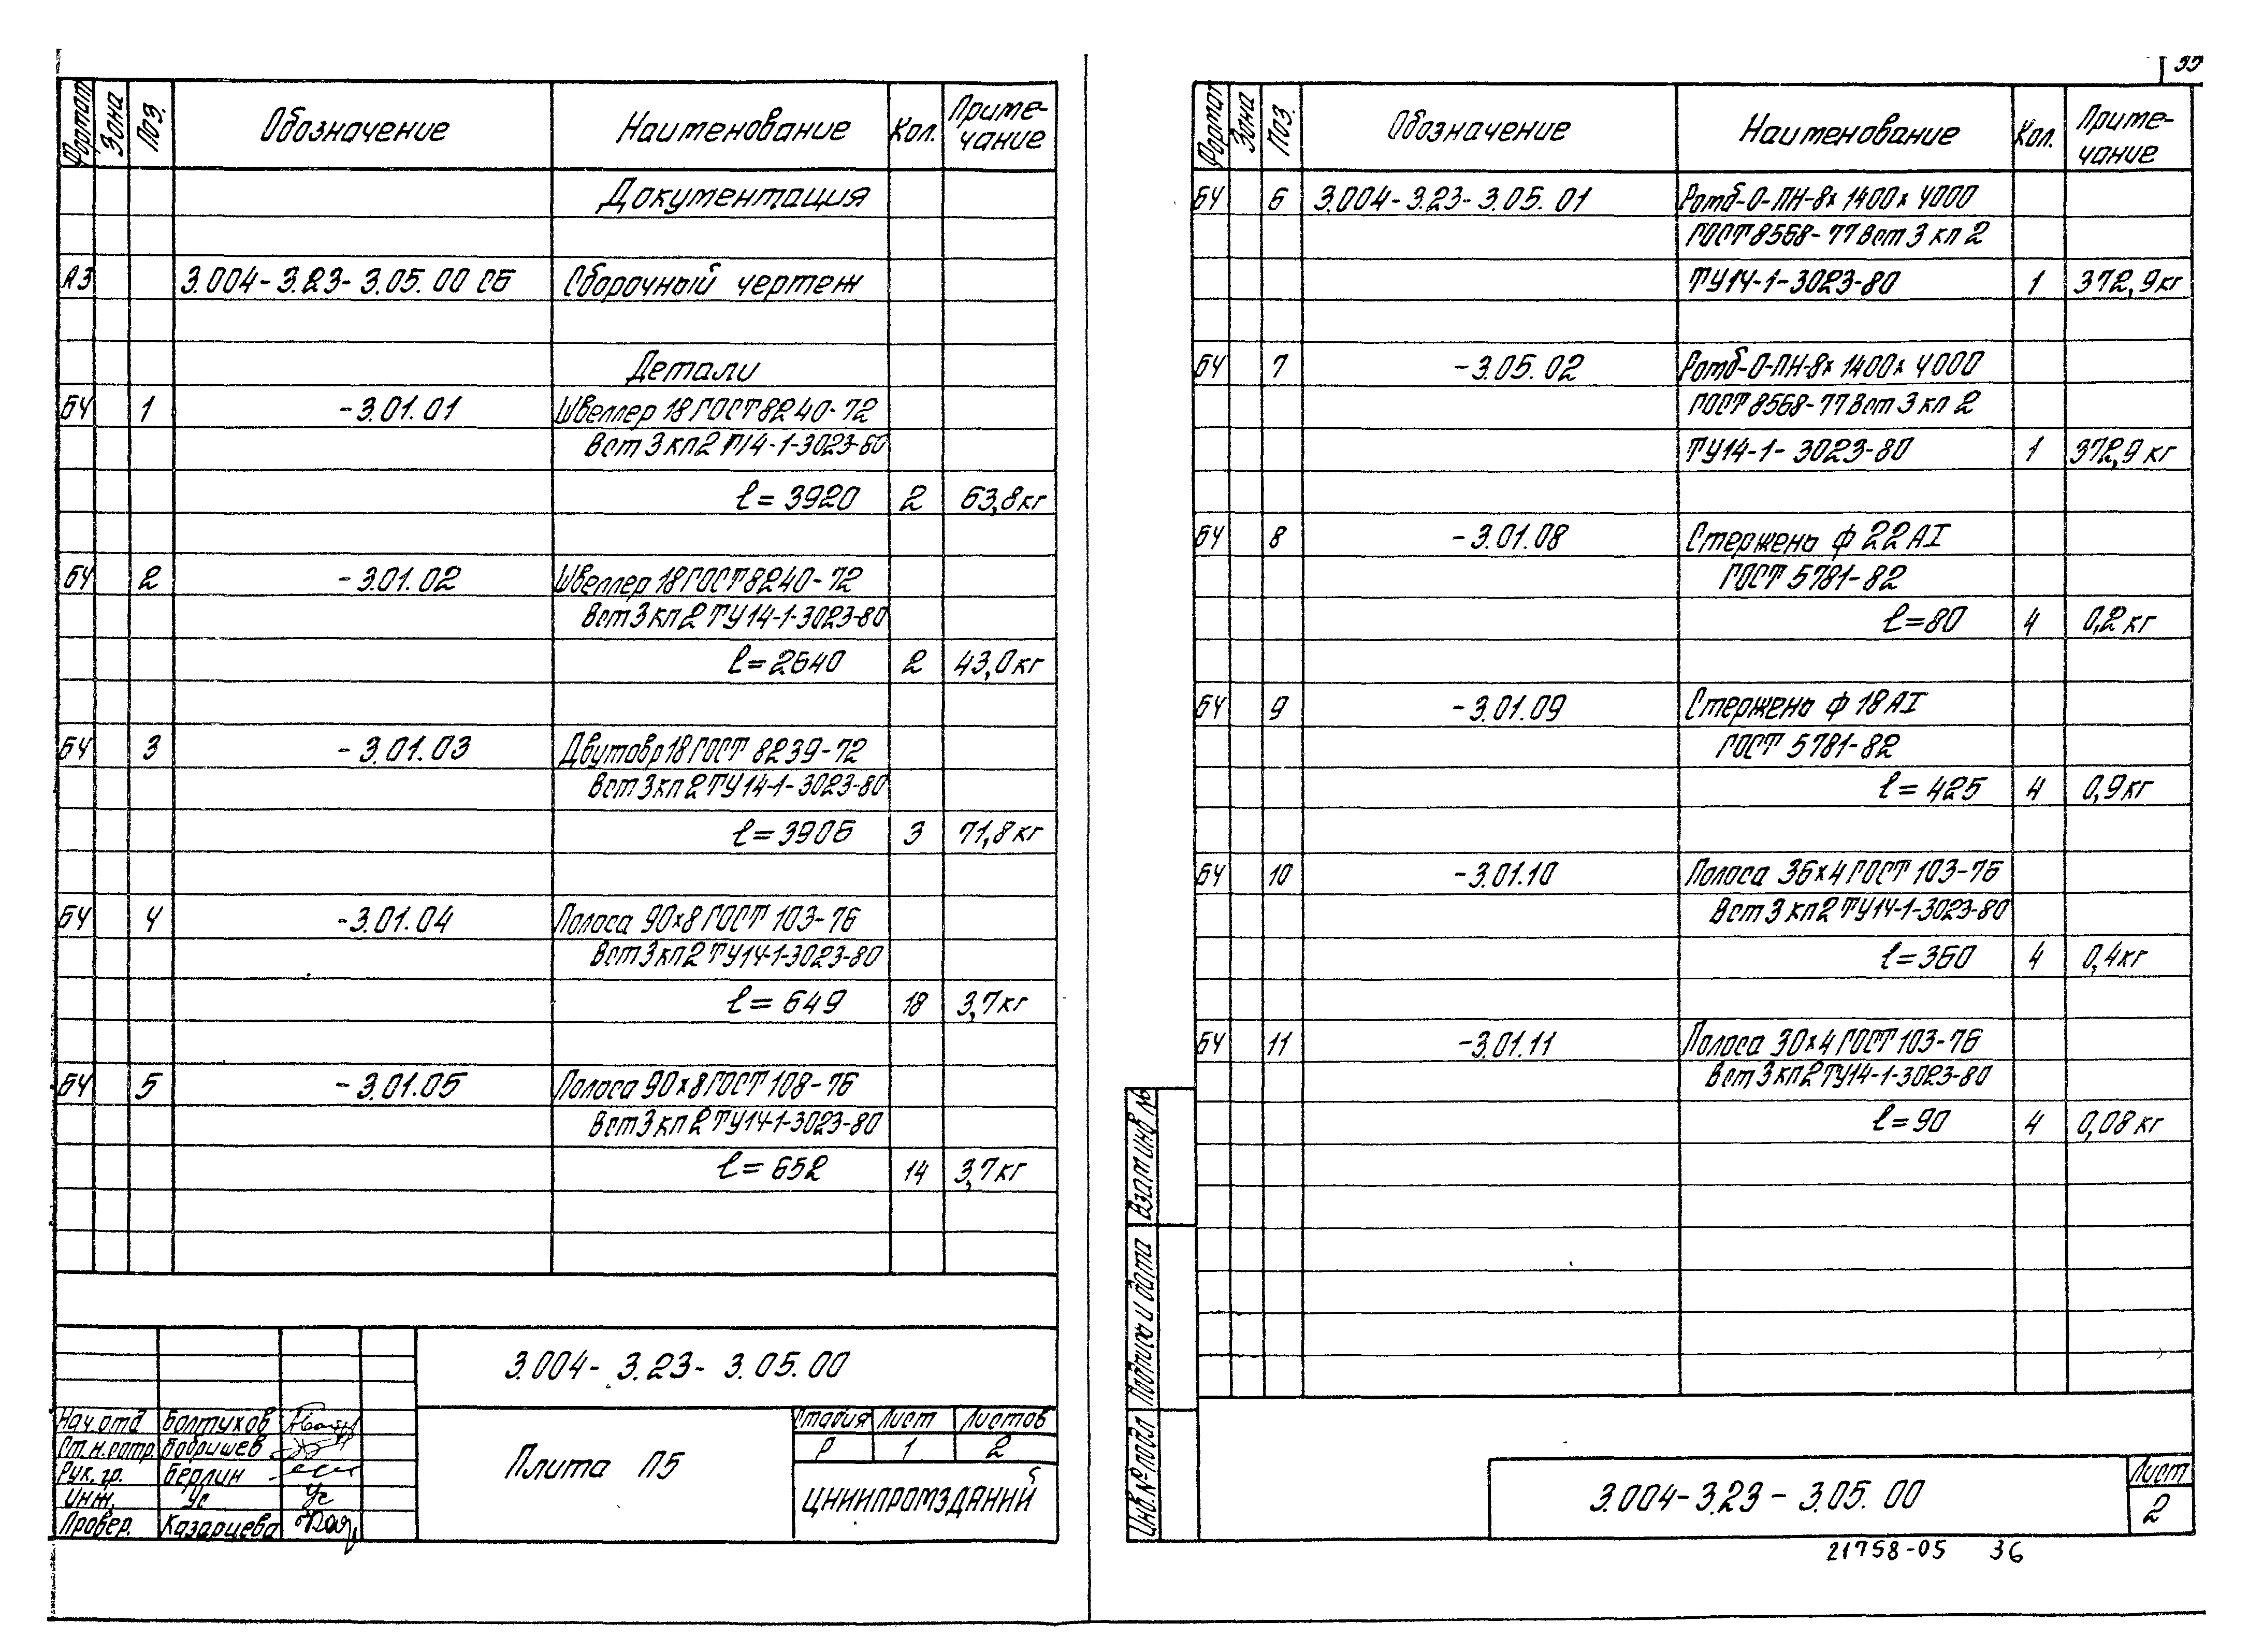 Формат Зона Поз. Обозначение Наименование Кол. Приме-
чание
Документация
А3 3.004-3.23-3.05.00 СБ Сборочный чертеж
Детали
БЧ 1 -3.01.01 Швеллер 18 ГОСТ 8240-72
Вст 3 кп 2 ТУ14-1-3023-80
ℓ=3920 2 63,8 кг
БЧ 2 -3.01.02 Швеллер 18 ГОСТ 8240-72
Вст 3 кп 2 ТУ14-1-3023-80
ℓ=2640 2 43,0 кг
БЧ 3 -3.01.03 Двутавр 18 ГОСТ 8239-72
Вст 3 кп 2 ТУ14-1-3023-80
ℓ=3906 3 71,8 кг
БЧ 4 -3.01.04 Полоса 90×8 ГОСТ 103-76
Вст 3 кп 2 ТУ14-1-3023-80
ℓ=649 18 3,7 кг
БЧ 5 -3.01.05 Полоса 90×8 ГОСТ 108-76
Вст 3 кп 2 ТУ14-1-3023-80
ℓ=652 14 3,7 кг
3.004-3.23-3.05.00
Нач.отд Болтухов
Ст.н.сотр. Бобришев
Рук. гр. Берлин
Инж. Ус Ус
Провер. Казарцева
Плита П5
Стадия Лист Листов
Р 1 2
ЦНИИПРОМЗДАНИЙ
Формат Зона Поз. Обозначение Наименование Кол. Приме-
чание
БЧ 6 3.004-3.23-3.05.01 Ромб-О-ПН-8×1400×4000
ГОСТ 8568-77 Вст 3 кп 2
ТУ14-1-3023-80 1 372,9 кг
БЧ 7 -3.05.02 Ромб-О-ПН-8×1400×4000
ГОСТ 8568-77 Вст 3 кп 2
ТУ14-1-3023-80 1 372,9 кг
БЧ 8 -3.01.08 Стержень ф 22 АI
ГОСТ 5781-82
ℓ=80 4 0,2 кг
БЧ 9 -3.01.09 Стержень ф 18 АI
ГОСТ 5781-82
ℓ=425 4 0,9 кг
БЧ 10 -3.01.10 Полоса 36×4 ГОСТ 103-76
Вст 3 кп 2 ТУ14-1-3023-80
ℓ=360 4 0,4 кг
БЧ 11 -3.01.11 Полоса 30×4 ГОСТ 103-76
Вст 3 кп 2 ТУ14-1-3023-80
ℓ=90 4 0,08 кг
Взам инв №
Подпись и дата
Инв.№ подл
3.004-3.23-3.05.00
Лист
2
21758-05 36